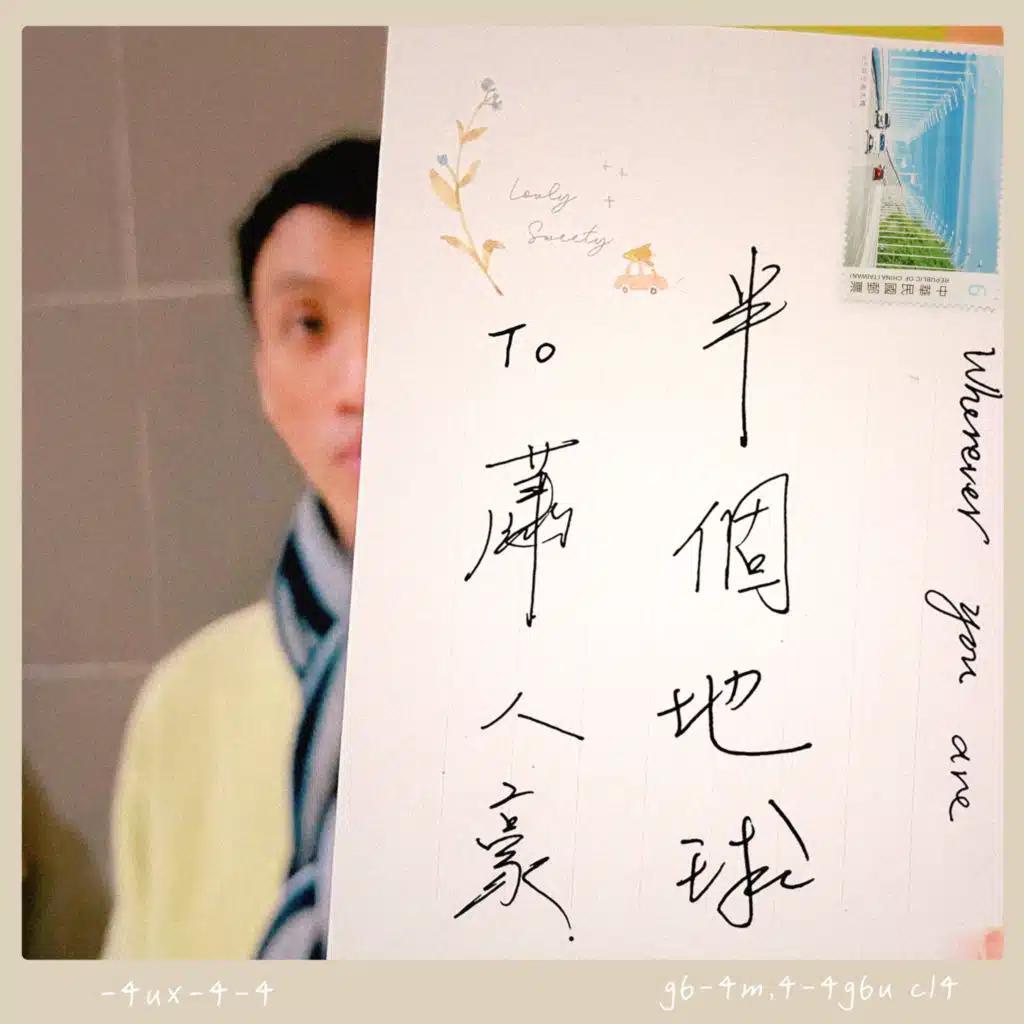 Lovly
Sweety
To 蕭人豪.
半個地球
Wherever you are
REPUBLIC OF CHINA(TAIWAN)
中華民國郵票
6
-4ux-4-4
g6-4m,4-4g6u cl4